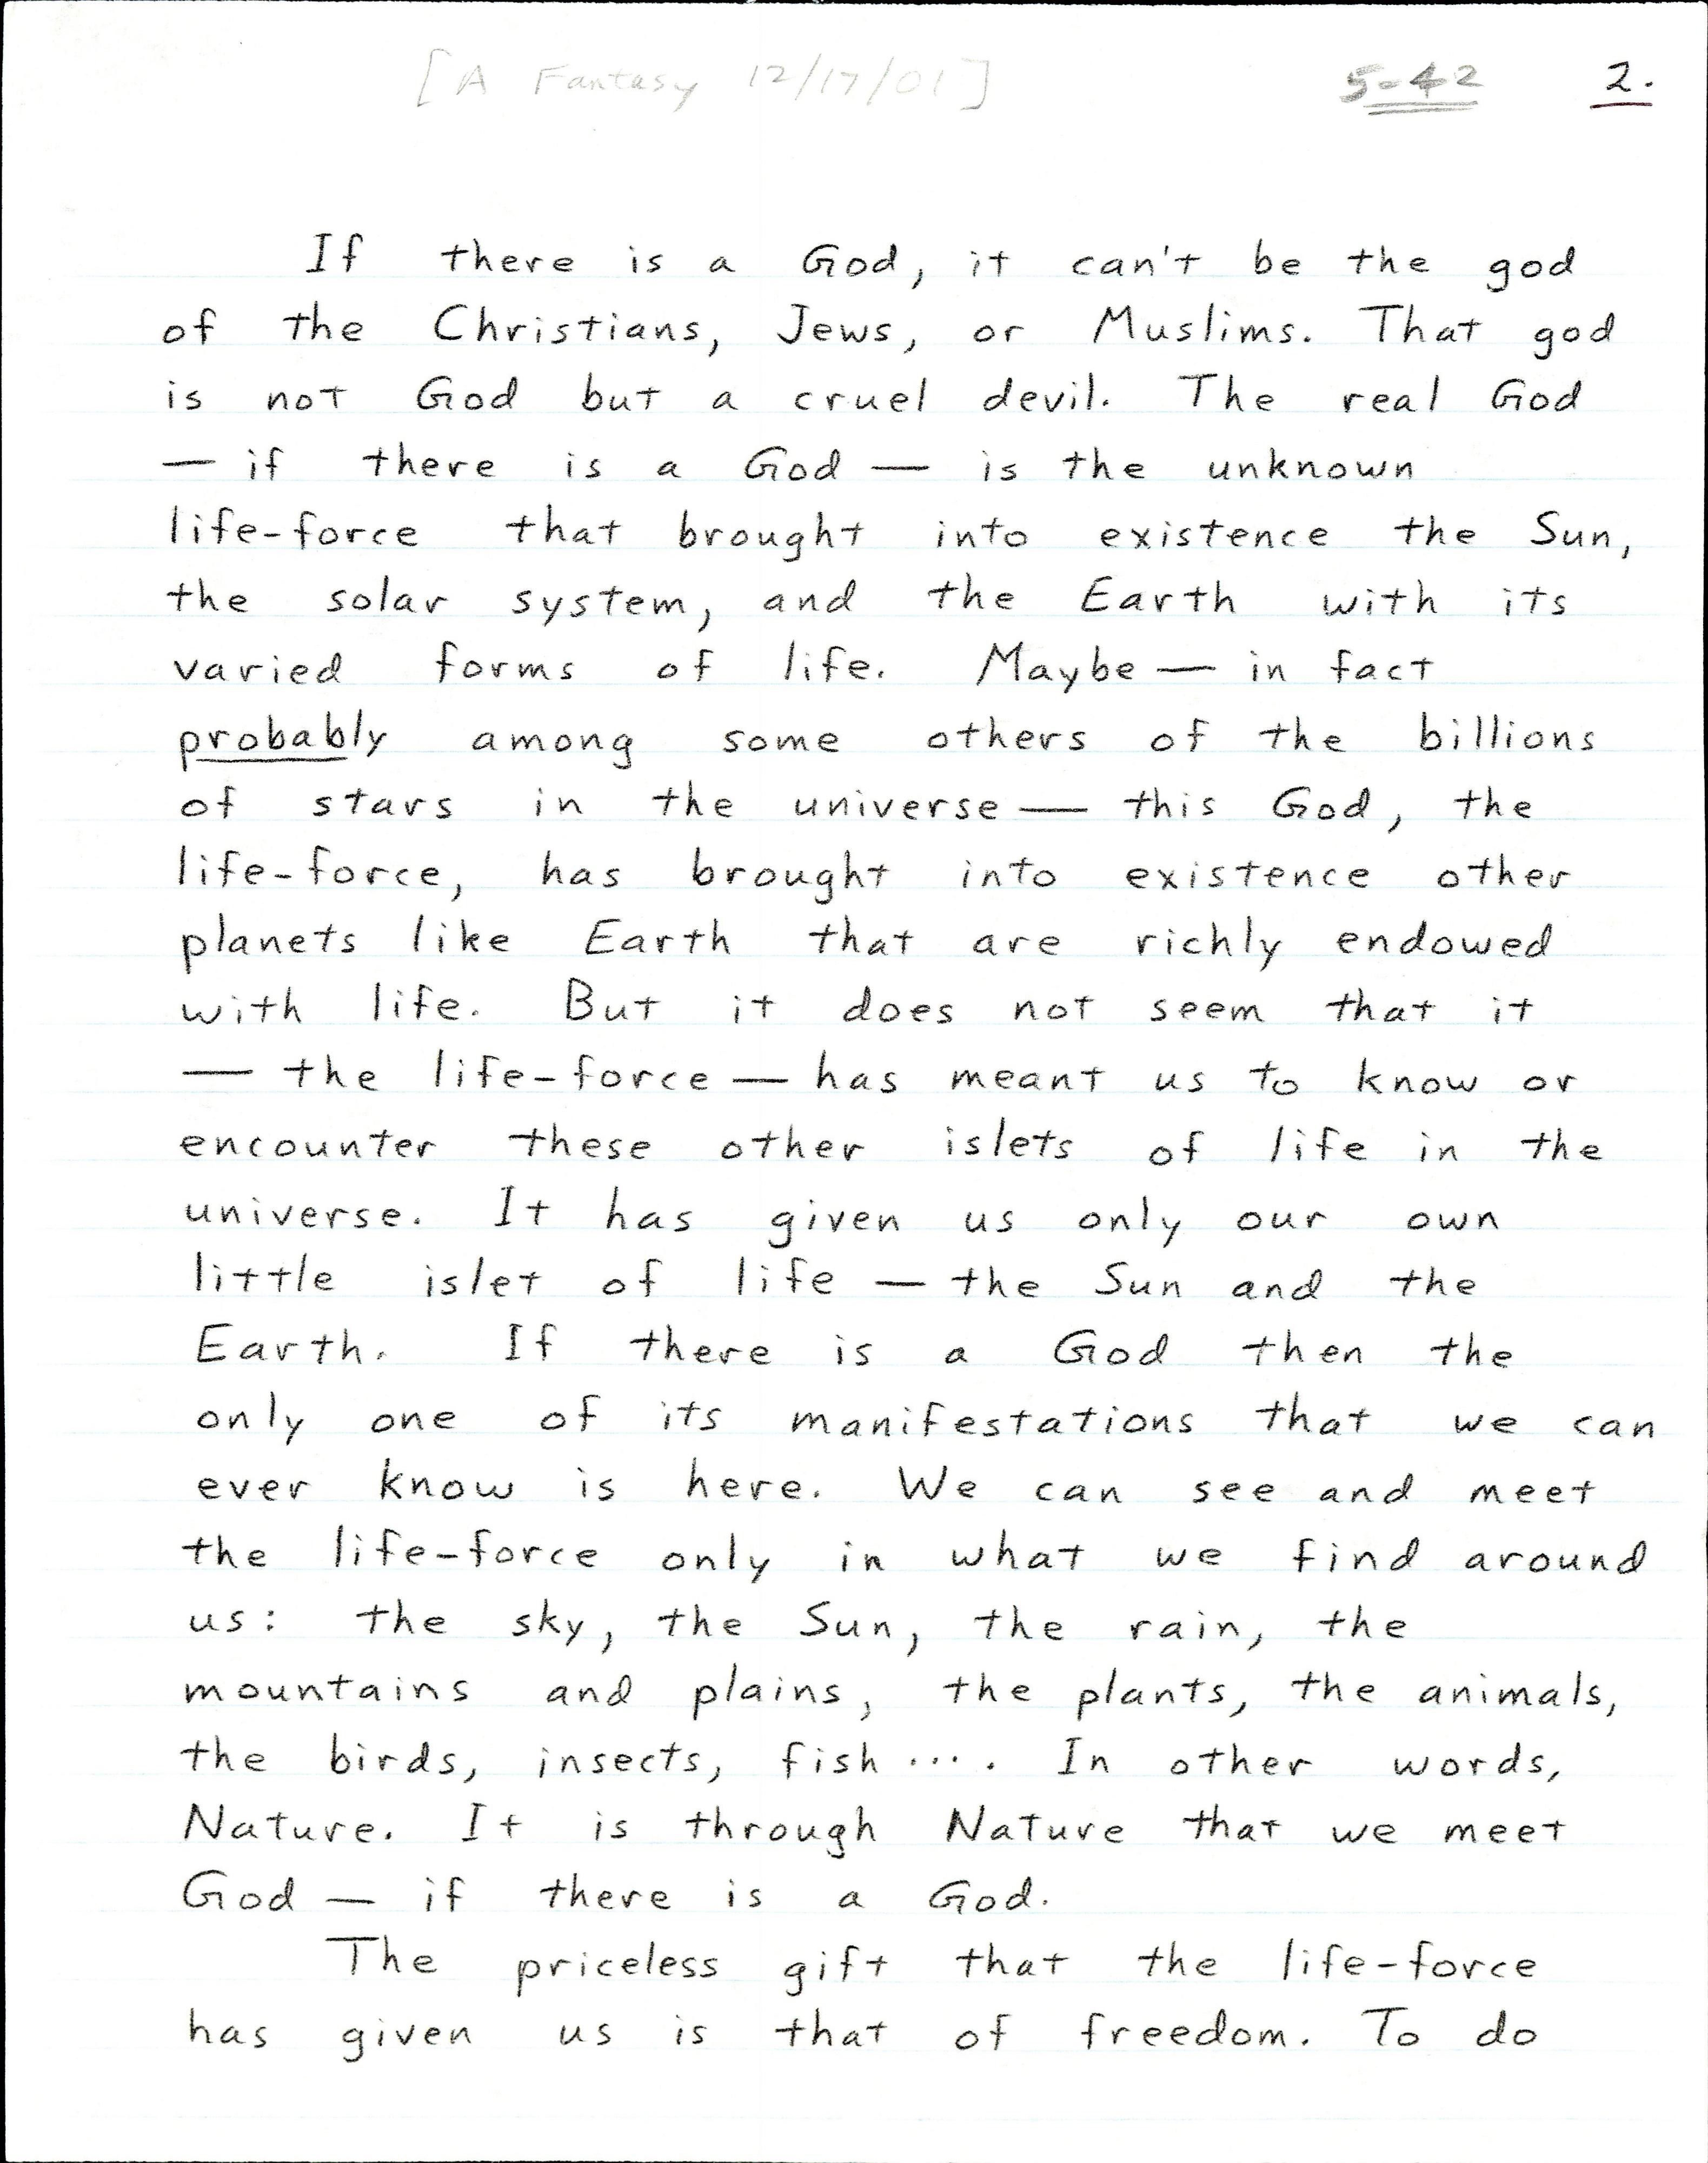 [A Fantasy 12/17/01] 5-42 2.
If there is a God, it can't be the god
of the Christians, Jews, or Muslims. That god
is not God but a cruel devil. The real God
— if there is a God — is the unknown
life-force that brought into existence the Sun,
the solar system, and the Earth with its
varied forms of life. Maybe — in fact
probably among some others of the billions
of stars in the universe — this God, the
life-force, has brought into existence other
planets like Earth that are richly endowed
with life. But it does not seem that it
— the life-force — has meant us to know or
encounter these other islets of life in the
universe. It has given us only our own
little islet of life — the Sun and the
Earth. If there is a God then the
only one of its manifestations that we can
ever know is here. We can see and meet
the life-force only in what we find around
us: the sky, the Sun, the rain, the
mountains and plains, the plants, the animals,
the birds, insects, fish .... In other words,
Nature. It is through Nature that we meet
God — if there is a God.
The priceless gift that the life-force
has given us is that of freedom. To do